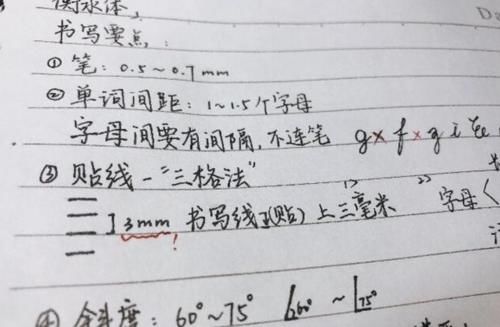 衡水体,
书写要点:
① 笔: 0.5~0.7mm
② 单词间距: 1~1.5个字母
字母间要有间隔,不连笔 g× f × g i
③ 贴线-"三格法"
3mm 书写线上(贴) 上三毫米 字母<
④ 斜度: 60°~75° 60° ~ 75°